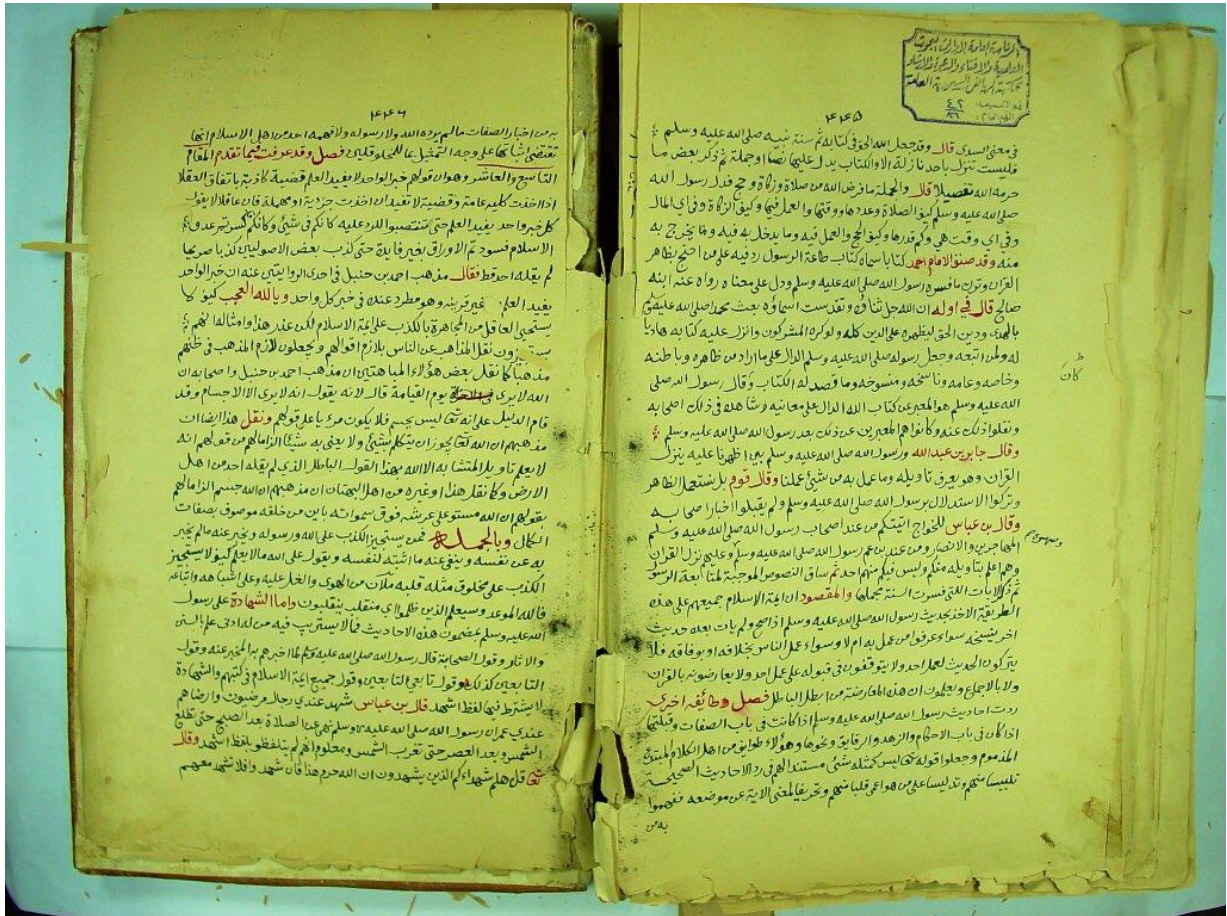 ٤٤٥
في معنى السدى قال وقد جعل الله الحق في كتابه ثم سنة نبيه صلى الله عليه وسلم
فليست تنزل باحد نازلة الا والكتاب يدل عليها نصا او جملة ثم ذكر بعض ما
حرمه الله تفصيلا قال والجملة ما فرض الله من صلاة وزكاة وحج فدل رسول الله
صلى الله عليه وسلم كيف الصلاة وعددها ووقتها والعمل فيها وكيف الزكاة وفي اي المال
وفي اي وقت هي وكم قدرها وكيف الحج والعمل فيه وما يدخل به فيه وما يخرج به
منه وقد صنف الامام احمد كتابا سماه كتاب طاعة الرسول رد فيه على من احتج بظاهر
القران وترك ما فسره رسول الله صلى الله عليه وسلم ودل على معناه رواه عنه ابنه
صالح قال في اوله ان الله جل ثناؤه وتقدست اسماؤه بعث محمدا صلى الله عليه وسلم
بالهدى ودين الحق ليظهره على الدين كله ولو كره المشركون وانزل عليه كتابه هاديا
له ولمن اتبعه وجعل رسوله صلى الله عليه وسلم الدال على ما اراد من ظاهره وباطنه
وخاصه وعامه وناسخه ومنسوخه وما قصد له الكتاب وقال رسول الله صلى
الله عليه وسلم هو المعبر عن كتاب الله الدال على معانيه وشاهده في ذلك اصحابه
ونقلوا ذلك عنه وكانوا هم المعبرين عن ذلك بعد رسول الله صلى الله عليه وسلم
وقال جابر بن عبد الله ورسول الله صلى الله عليه وسلم بين اظهرنا عليه ينزل
القران وهو يعرف تاويله وما عمل به من شيئ عملنا وقال قوم بل نستعمل الظاهر
وتركوا الاستدلال برسول الله صلى الله عليه وسلم ولم يقبلوا اخبار اصحابه
وقال بن عباس للخوارج اتيتكم من عند اصحاب رسول الله صلى الله عليه وسلم
المهاجرين والانصار ومن عند بن عم رسول الله صلى الله عليه وسلم وعليهم نزل القران
وهم اعلم بتاويله منكم وليس فيكم منهم احد ثم ساق النصوص الموجبة لمتابعة الرسول
ثم ذكر الايات اللتي فسرت السنة مجملها والمقصود ان ايمة الاسلام جميعهم على هذه
الطريقة الاخذ بحديث رسول الله صلى الله عليه وسلم اذا صح ولم يات بعده حديث
اخر ينسخه سواء عرفوا من عمل به ام لا وسواء عمل الناس بخلافه او بوفاقه فلا
يتركون الحديث لعمل احد ولا يتوقفون في قبوله على عمل احد ولا يعارضونه بالقران
ولا بالاجماع ويعلمون ان هذه المعارضة من ابطل الباطل فصل وطائفة اخرى
ردت احاديث رسول الله صلى الله عليه وسلم اذا كانت في باب الصفات وقبلتها
اذا كان في باب الاحكام والزهد والرقايق ونحوها وهؤلاء طوايف من اهل الكلام المبتدع
المذموم وجعلوا قوله تعالى ليس كمثله شئ مستندا لهم في رد الاحاديث الصحيحة
تلبيسا منهم وتدليسا على من هو اعمى قلبا منهم وتحريفا لمعنى الاية عن موضعه ففهموا
به من
كان
٤٤٦
به من اخبار الصفات ما لم يرده الله ولا رسوله ولا فهمه احد من اهل الاسلام انها
تقتضي اثباتها على وجه التمثيل بما للمخلوقين فصل وقد عرفت فيما تقدم المقام
التاسع والعاشر وهو ان قولهم خبر الواحد لا يفيد العلم قضية كاذبة باتفاق العقلا
اذا اخذت كلية عامة وقضية لا تفيد ان اخذت جزئية او مهملة فان عاقلا لا يقول
كل خبر واحد يفيد العلم حتى تنتصبوا للرد عليه كانكم في شيئ وكانكم كسرتم عدو
الاسلام فسودتم الاوراق بغير فايدة حتى كذب بعض الاصوليين كذبا صريحا
لم يقله احد قط فقال مذهب احمد بن حنبل في احدى الروايتين عنه ان خبر الواحد
يفيد العلم غير قرينة وهو مطرد عنده في خبر كل واحد ويا لله العجب كيف لا
يستحيي العاقل من المجاهرة بالكذب على ايمة الاسلام لكن عذر هذا وامثاله انهم
يستجيزون نقل المذاهب عن الناس بلازم اقوالهم ويجعلون لازم المذهب في ظنهم
مذهبا كما نقل بعض هؤلاء المباهتين ان مذهب احمد بن حنبل واصحابه ان
الله لا يرى يوم القيامة قال لانه يقول انه لا يرى الا الاجسام وقد
قام الدليل على انه تعالى ليس بجسم فلا يكون مرئيا على قولهم ونقل هذا ايضا ان
مذهبهم ان الله تعالى يجوز ان يتكلم بشيئ ولا يعنى به شيئا الزاما لهم من قولهم انه
لا يعلم تاويل المتشابه الا الله بهذا القول الباطل الذي لم يقله احد من اهل
الارض وكما نقل هذا وغيره من اهل البهتان ان مذهبهم ان الله جسم الزاما لهم
بقولهم ان الله مستو على عرشه فوق سمواته باين من خلقه موصوف بصفات
الكمال وبالجملة فمن يستجيز الكذب على الله ورسوله ويخبر عنه ما لم يخبر
به عن نفسه وينفي عنه ما اثبته لنفسه ويقول على الله ما لا يعلم كيف لا يستجيز
الكذب على مخلوق مثله قلبه ملآن من الهوى والغل عليه وعلى اشباهه واتباعه
فالله الموعد وسيعلم الذين ظلموا اي منقلب ينقلبون واما الشهادة على رسول
الله عليه وسلم بمضمون هذه الاحاديث فما لا يستريب فيه من له ادنى علم بالسنن
والاثار وقول الصحابة قال رسول الله صلى الله عليه وسلم لما اخبرهم به المخبر عنه وقول
التابعين كذلك وقول تابعي التابعين وقول جميع ايمة الاسلام في كتبهم والشهادة
لا يشترط فيها لفظ اشهد قال بن عباس شهد عندي رجال مرضيون وارضاهم
عندي عمر ان رسول الله صلى الله عليه وسلم نهى عن الصلاة بعد الصبح حتى تطلع
الشمس وبعد العصر حتى تغرب الشمس ومعلوم انهم لم يتلفظو بلفظ اشهد وقال
تعالى قل هلم شهداءكم الذين يشهدون ان الله حرم هذا فان شهدوا فلا تشهد معهم